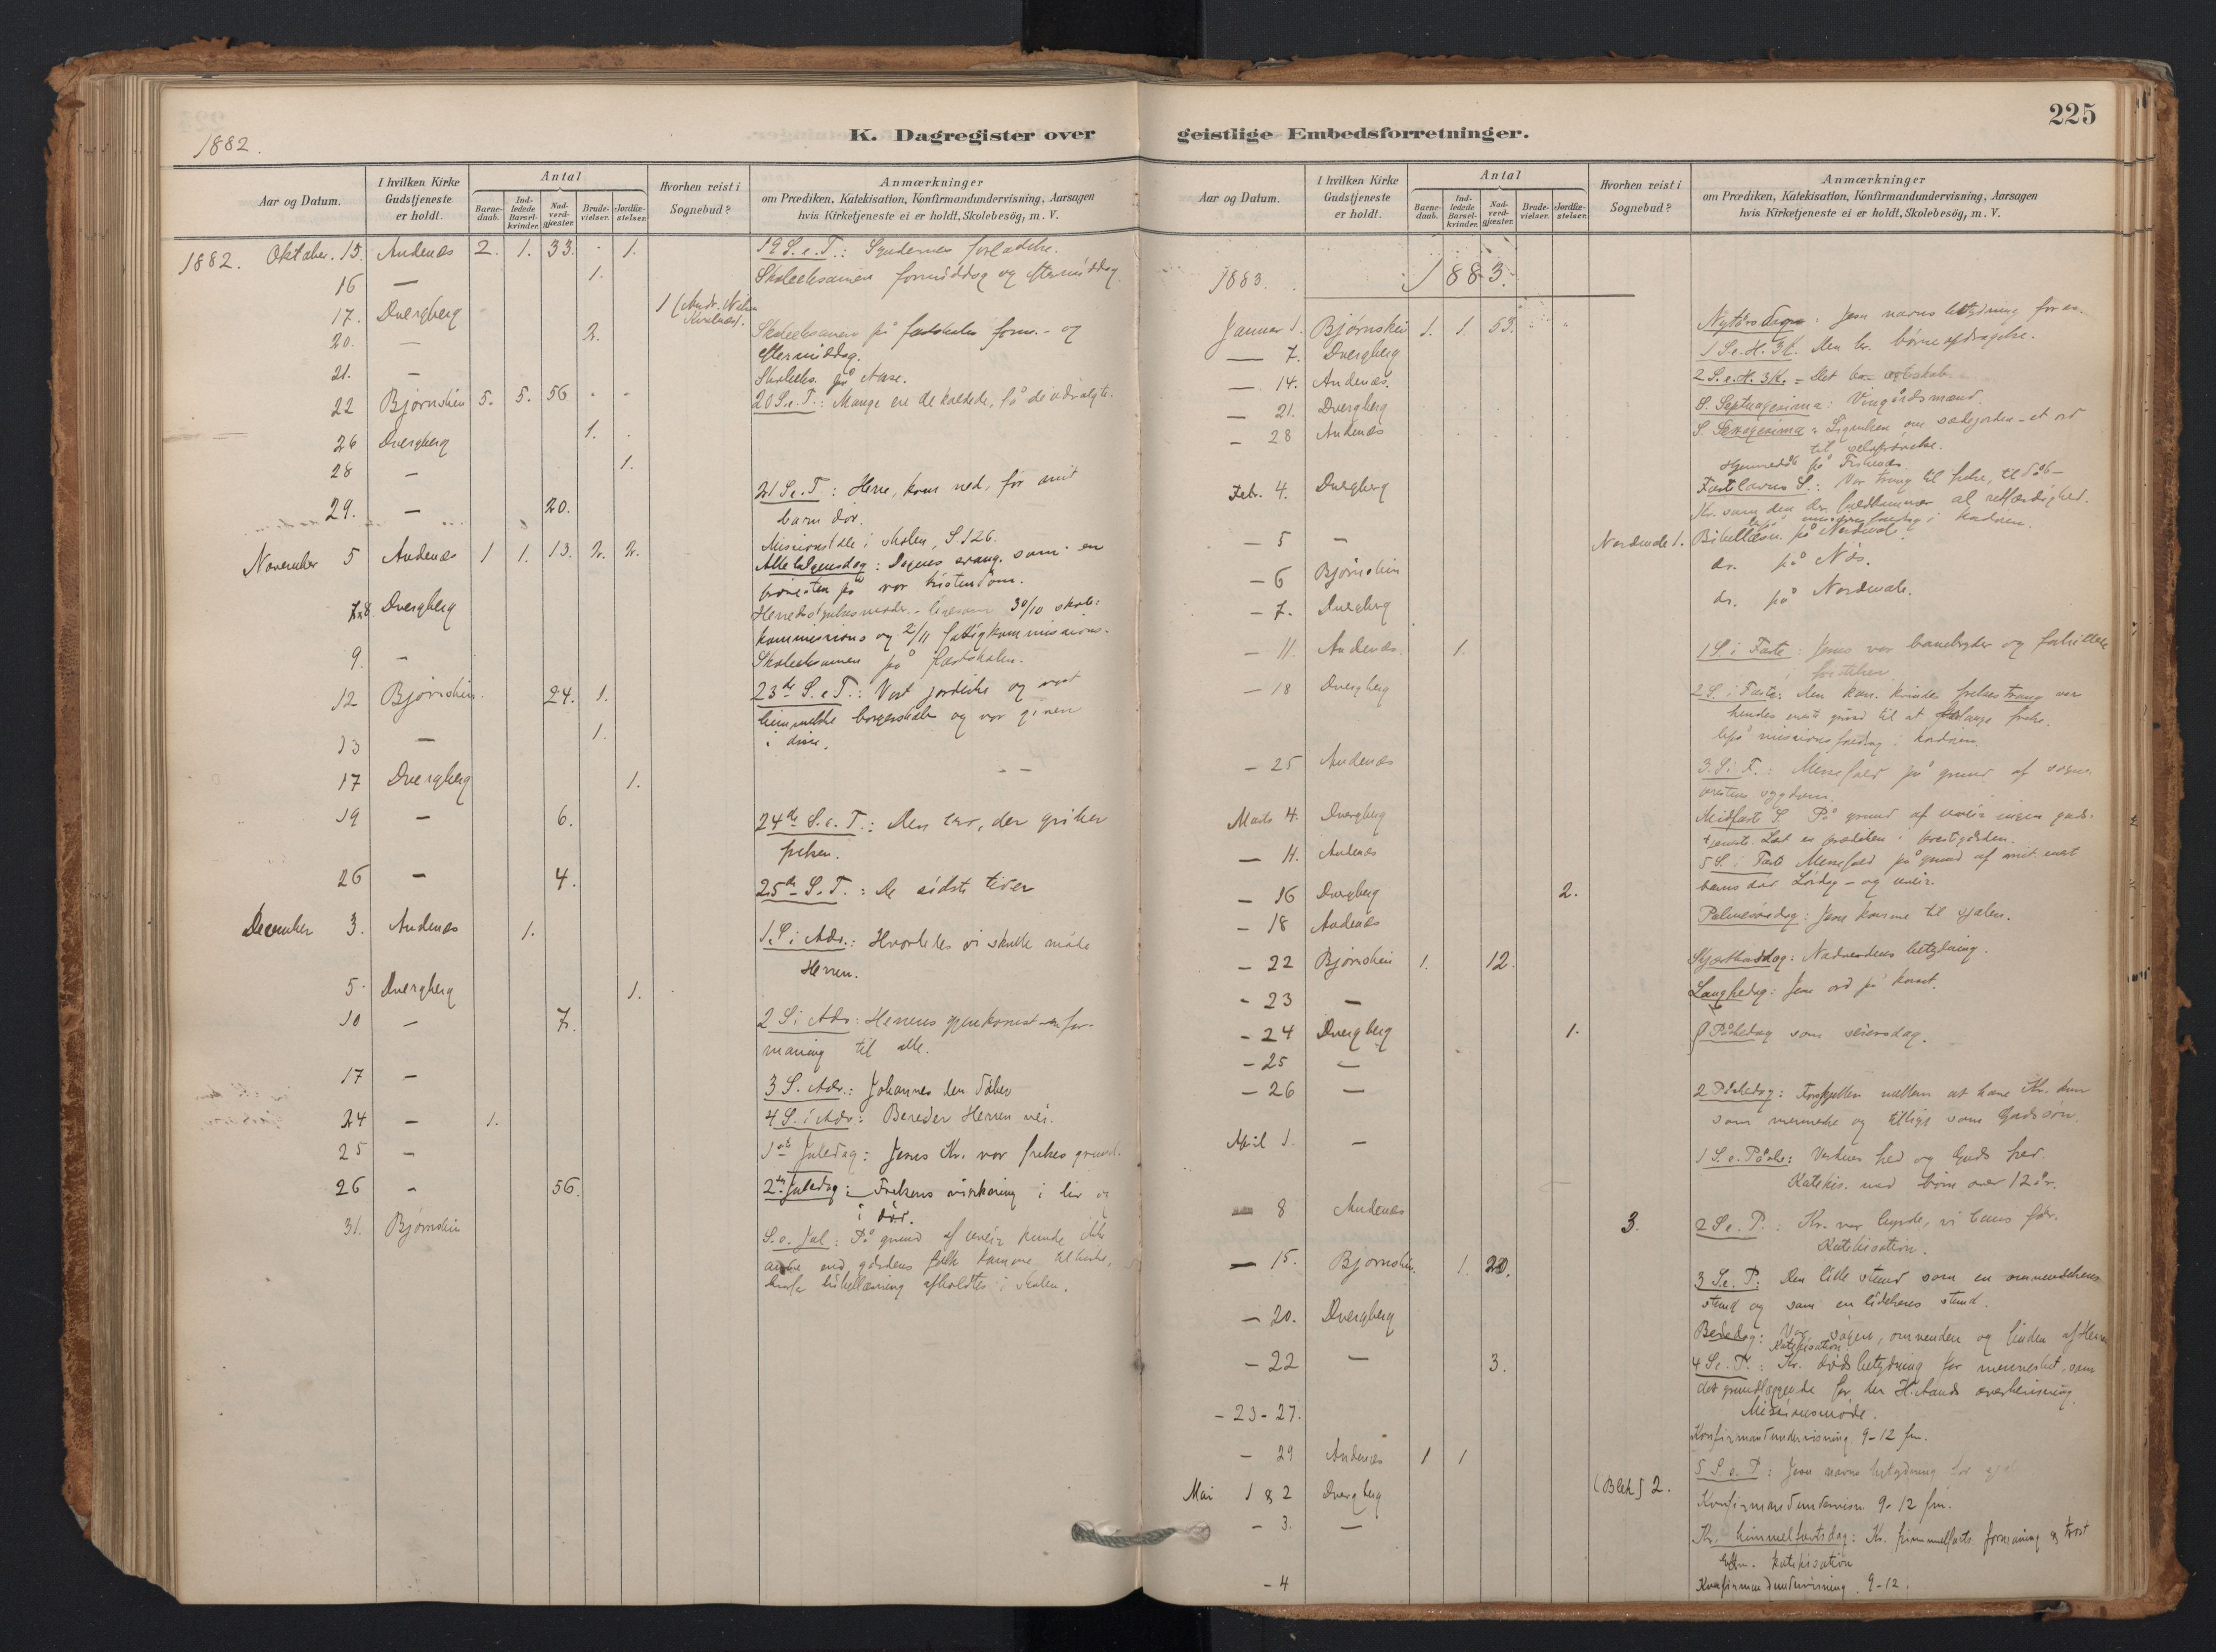 225
K. Dagregister over geistlige Embedsforretninger.
1882.
Aar og Datum.
I hvilken Kirke Gudstjeneste er holdt.
Antal
Barnedaab.
Indledede Barselkvinder.
Nadverdgjester.
Brudevielser.
Jordfæstelser.
Hvorhen reist i Sognebud?
Anmærkninger
om Prædiken, Katekisation, Konfirmandundervisning, Aarsagen
hvis Kirketjeneste ei er holdt, Skolebesög, m. V.
1882. Oktober. 15. Andenæs 2. 1. 33. - 1. 19 S. e. T.: Syndernes forladelse.
16 — 1. Skoleeksamen formiddag og eftermiddag.
17. Dvergberg 1 (Andr.
20. — 2. Skoleeksamen på fastskolen form.- og
eftermiddag.
21. — Skoleeks. på Aase.
22 Bjørnskin 5. 5. 56 - - 20 S. e. T.: Mange ere de kaldede, få de udvalgte.
26 Dvergberg 1.
28 — 1.
29. — 20. 21 S. e. T: Herre, kom ned, før mit
barn dør.
November 5 Andenæs 1 1. 13. 2. 2. Missionstale i skolen, S. 126.
Alle helgensdag: Dagens evang. som en
prøvesten på vor kristendom.
7 & 8 Dvergberg Herredsstyrelsesmøde - ligesom 30/10 skole-
kommissions og 2/11 fattigkommissions-
9. — Skoleeksamen på fastskolen.
12 Bjørnskin. 24. 1. 23de S. e T.: Vort jordiske og vort
himmelske borgerskab og vor gjerning
i disse.
13 — 1.
17 Dverghberg 1.
19 — 6. 24de S. e. T.: Den tro, der griber
frelsen.
26 — 4. 25de S. T.: De sidste tider
December 3. Andenæs 1. 1 S. i Adv.: Hvorledes vi skulle møde
Herren.
5. Dvergberg 1.
10 — 7. 2 S. i Adv.: Herrens gjenkomst en for-
maning til alle.
17 — 3 S. Adv.: Johannes den døber
24 — 1. 4 S. i Adv: Bereder Herren vei.
25 — 1ste Juledag: Jesus Kr. vor frelses grund.
26 - 56. 2den Juledag: Frelsens virkning i liv og
i død.
31. Bjørnskin S. e. Jul: På grund af uveir kunde ikke
andre end gårdens folk komme til kirke,
derfor bibellæsning afholdtes i skolen.
Aar og Datum.
I hvilken Kirke Gudstjeneste er holdt.
Antal
Barnedaab.
Indledede Barselkvinder.
Nadverdgjester.
Brudevielser.
Jordfæstelser.
Hvorhen reist i Sognebud?
Anmærkninger
om Prædiken, Katekisation, Konfirmandundervisning, Aarsagen
hvis Kirketjeneste ei er holdt, Skolebesög, m. V.
1883. 1883.
Januar 1. Bjørnskin 1. 1. 53. Nytårsdag: Jesu navns betydning for os.
— 7. Dverghberg 1 S. e. H. 3 K. Den kr. børneopdragelse.
— 14. Andenæs. 2 S. e. H. 3 K. - Det kr. ægteskab
— 21. Dverghberg S. Septuagesima: Vingårdsmænd.
— 28 Andenæs S. Sexagesima: Lignelsen om sædejorden - et ord
til selvprøvelse.
Feb. 4. Dverghberg Fastelavns S.: Vor trang til frelse, til dåb -
Kr. som den
— 5 — Nordmele 1. Bibellæsn. på Nordmele.
— 6 Bjørnskin do. på Nøs.
— 7. Dverghberg do. på Nordmele.
— 11. Andenæs. 1. 1 S. i Faste: Jesus vor banebryder og forbillede
i fristelsen.
— 18 Dverghberg 2 S. i Faste: Den kan. kvindes frelsestrang var
hendes eneste grund til at forlange frelse.
missionsforedrag i kordøren.
— 25 Andenæs 3. S. i F.: Messefald på grund af sogne-
prestens sygdom.
Marts 4. Dverghberg Midfaste S. På grund af uveir ingen guds-
tjeneste. Læst en prædiken i prestegården.
— 11. Andenæs 5 S. i Faste Messefald på grund af mit eneste
barns død Lørdag - og uveir.
— 16 Dverghberg 2.
— 18 Andenæs Palmesøndag: Jesu komme til sjælen.
— 22 Bjørnskin 1. 12. Skjærthorsdag: Nadverdens betydning.
- 23 — Langfredag: Jesu ord på korset.
- 24 Dverghberg 1.
- 25 — 1 Påskedag som seiersdag.
- 26 — 2 Påskedag: Forskjellen mellem at have Kr. kun
som menneske og tillige som Guds søn.
April 1. — 1 S. e. Påske: Verdens fred og Guds fred.
Katekis. med børn over 12 år.
— 8 Andenæs 3. 2 S. e. P.: Kr. vor hyrde, vi hans får.
Katekisation.
— 15. Bjørnskin. 1. 20. 3 S. e. P: Den lille stund som en omvendelsens
stund og som en lidelsens stund.
— 20. Dverghberg Bededag: Vor søgen, omvenden og finden af Herren
Katekisation.
— 22 — 3. 4 S. e. P.: Kr. døds betydning for mennesket, som
det grundlæggende for den H. Aands overbevisning.
Missionsmøde.
- 23-27. Konfirmandundervisning 9-12 fm.
- 29 Andenæs 1 1 5 S. e. P: Jesu navns betydning for
Mai 1 & 2 Dverghberg (Bleik) 2. Konfirmandundervisn 9-12 fm.
- 3. — Kr. himmelfartsdag: Kr. himmelfarts formaning & trøst
Eftm. katekisation
- 4 Konfirmandundervisning 9-12.